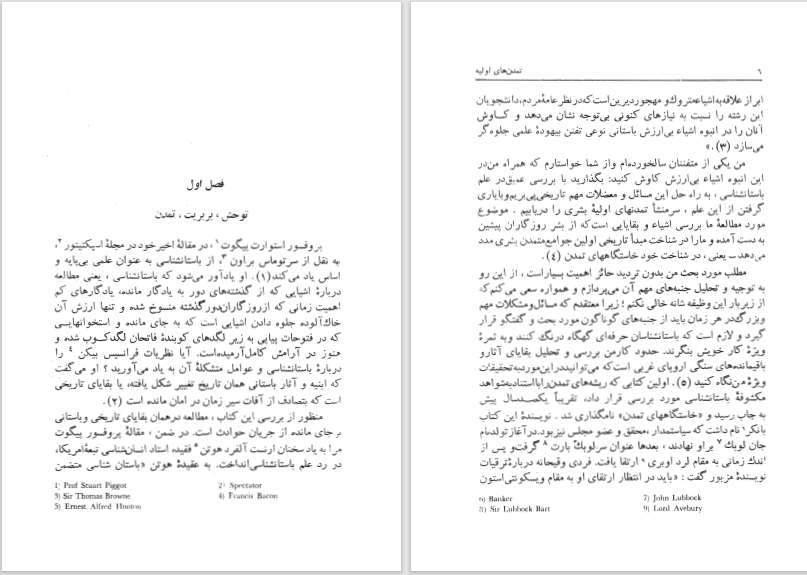 فصل اول
توحش ، بربریت ، تمدن
پروفسور استوارت پیگوت ۱ ، در مقالهٔ اخیر خود در مجلهٔ اسپکتیتور ۲،
به نقل از سرتوماس براون ۳، از باستانشناسی به عنوان علمی بی‌پایه و
اساس یاد می‌کند (۱) . او یادآور می‌شود که باستانشناسی ، یعنی مطالعه
دربارهٔ اشیایی که از گذشته‌های دور به یادگار مانده، یادگارهای کم
اهمیت زمانی که از روزگاران دور گذشته منسوخ شده و تنها ارزش آن
خاك‌آلوده جلوه دادن اشیایی است که به جای مانده و استخوانهایی
که در فتوحات پیاپی به زیر لگدهای کوبندهٔ فاتحان لگدکوب شده و
هنوز در آرامش کامل آرمیده‌است. آیا نظریات فرانسیس بیکن ۴ را
دربارهٔ باستانشناسی و عوامل متشکلهٔ آن به یاد می‌آورید ؟ او می‌گفت
که ابنیه و آثار باستانی همان تاریخ تغییر شکل یافته، یا بقایای تاریخی
است که بتصادف از آفات سیر زمان در امان مانده است (۲) .
منظور از بررسی این کتاب ، مطالعه در همان بقایای تاریخی و باستانی
بر جای مانده از جریان حوادث است. در ضمن ، مقالهٔ پروفسور پیگوت
مرا به یاد سخنان ارنست آلفرد هوتن ۵ فقید، استاد انسان‌شناسی تبعهٔ امریکا،
در رد علم باستانشناسی انداخت. به عقیدهٔ هوتن «باستان شناسی متضمن
1) Prof Stuart Piggot
2) Spectator
3) Sir Thomas Browne
4) Francis Bacon
5) Ernest Alfred Hooton
۶
تمدن‌های اولیه
ابراز علاقه به اشیاء متروك و مهجور دیرین است که در نظر عامهٔ مردم، دانشجویان
این رشته را نسبت به نیازهای کنونی بی‌توجه نشان می‌دهد و کاوش
آنان را در انبوه اشیاء بی‌ارزش باستانی نوعی تفنن بیهودهٔ علمی جلوه‌گر
می‌سازد (۳) .»
من یکی از متفننان سالخورده‌ام و از شما خواستارم که همراه من در
این انبوه اشیاء بی‌ارزش کاوش کنید: بگذارید با بررسی عمیق در علم
باستانشناسی ، به راه حل این مسائل و معضلات مهم تاریخی پی‌بریم و با یاری
گرفتن از این علم ، سرمنشأ تمدنهای اولیهٔ بشری را دریابیم . موضوع
مورد مطالعهٔ ما بررسی اشیاء و بقایایی است که از بشر روزگاران پیشین
به دست آمده و ما را در شناخت مبدأ تاریخی اولین جوامع متمدن بشری مدد
می‌دهد ـ یعنی ، در شناخت خود خاستگاههای تمدن (۴) .
مطلب مورد بحث من بدون تردید حائز اهمیت بسیار است ، از این رو
به توجیه و تحلیل جنبه‌های مهم آن می‌پردازم و همواره سعی می‌کنم که
از زیر بار این وظیفه شانه خالی نکنم ؛ زیرا معتقدم که مسائل و مشکلات مهم
و بزرگ در هر زمان باید از جنبه‌های گوناگون مورد بحث و گفتگو قرار
گیرد و لازم است که باستانشناسان حرفه‌ای گهگاه درنگ کنند و به ثمرهٔ
ویژهٔ کار خویش بنگرند. حدود کار من بررسی و تحلیل بقایای آثار و
باقیمانده‌های سنگی اروپای غربی است که می‌توانید در این مورد به تحقیقات
ویژهٔ من نگاه کنید (۵) . اولین کتابی که ریشه‌های تمدن را با استناد به شواهد
مکشوفهٔ باستانشناسی مورد بررسی قرار داد، تقریباً یکصدسال پیش
به چاپ رسید و «خاستگاههای تمدن» نامگذاری شد . نویسندهٔ این کتاب
بانکر ۶ نام داشت که سیاستمدار، محقق و عضو مجلس نیز بود. در آغاز تولد نام
جان لوبك ۷ بر او نهادند ، بعدها عنوان سرلوبك بارت ۸ گرفت و پس از
اندك زمانی به مقام لرد اوبری ۹ ارتقا یافت. فردی وقیحانه دربارهٔ ترقیات
نویسندهٔ مزبور گفت : «باید در انتظار ارتقای او به مقام ویسکونتی استون
6) Banker
7) John Lubbock
8) Sir Lubbock Bart
9) Lord Avebury